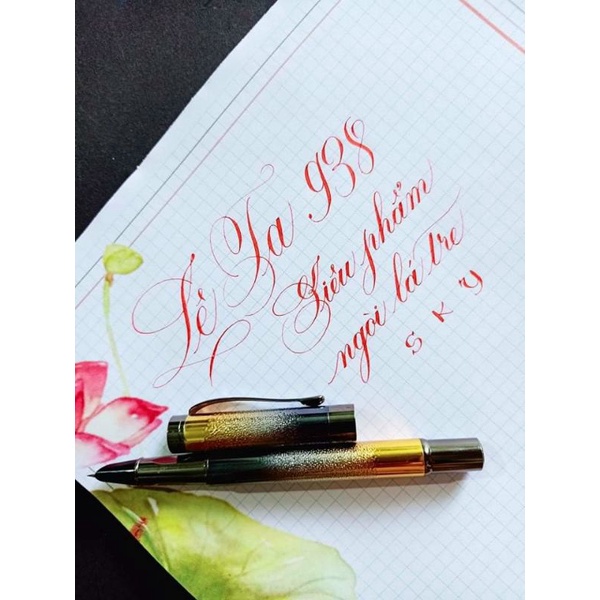 Lê Ta 938
Siêu phẩm
ngòi lá tre
S K Y